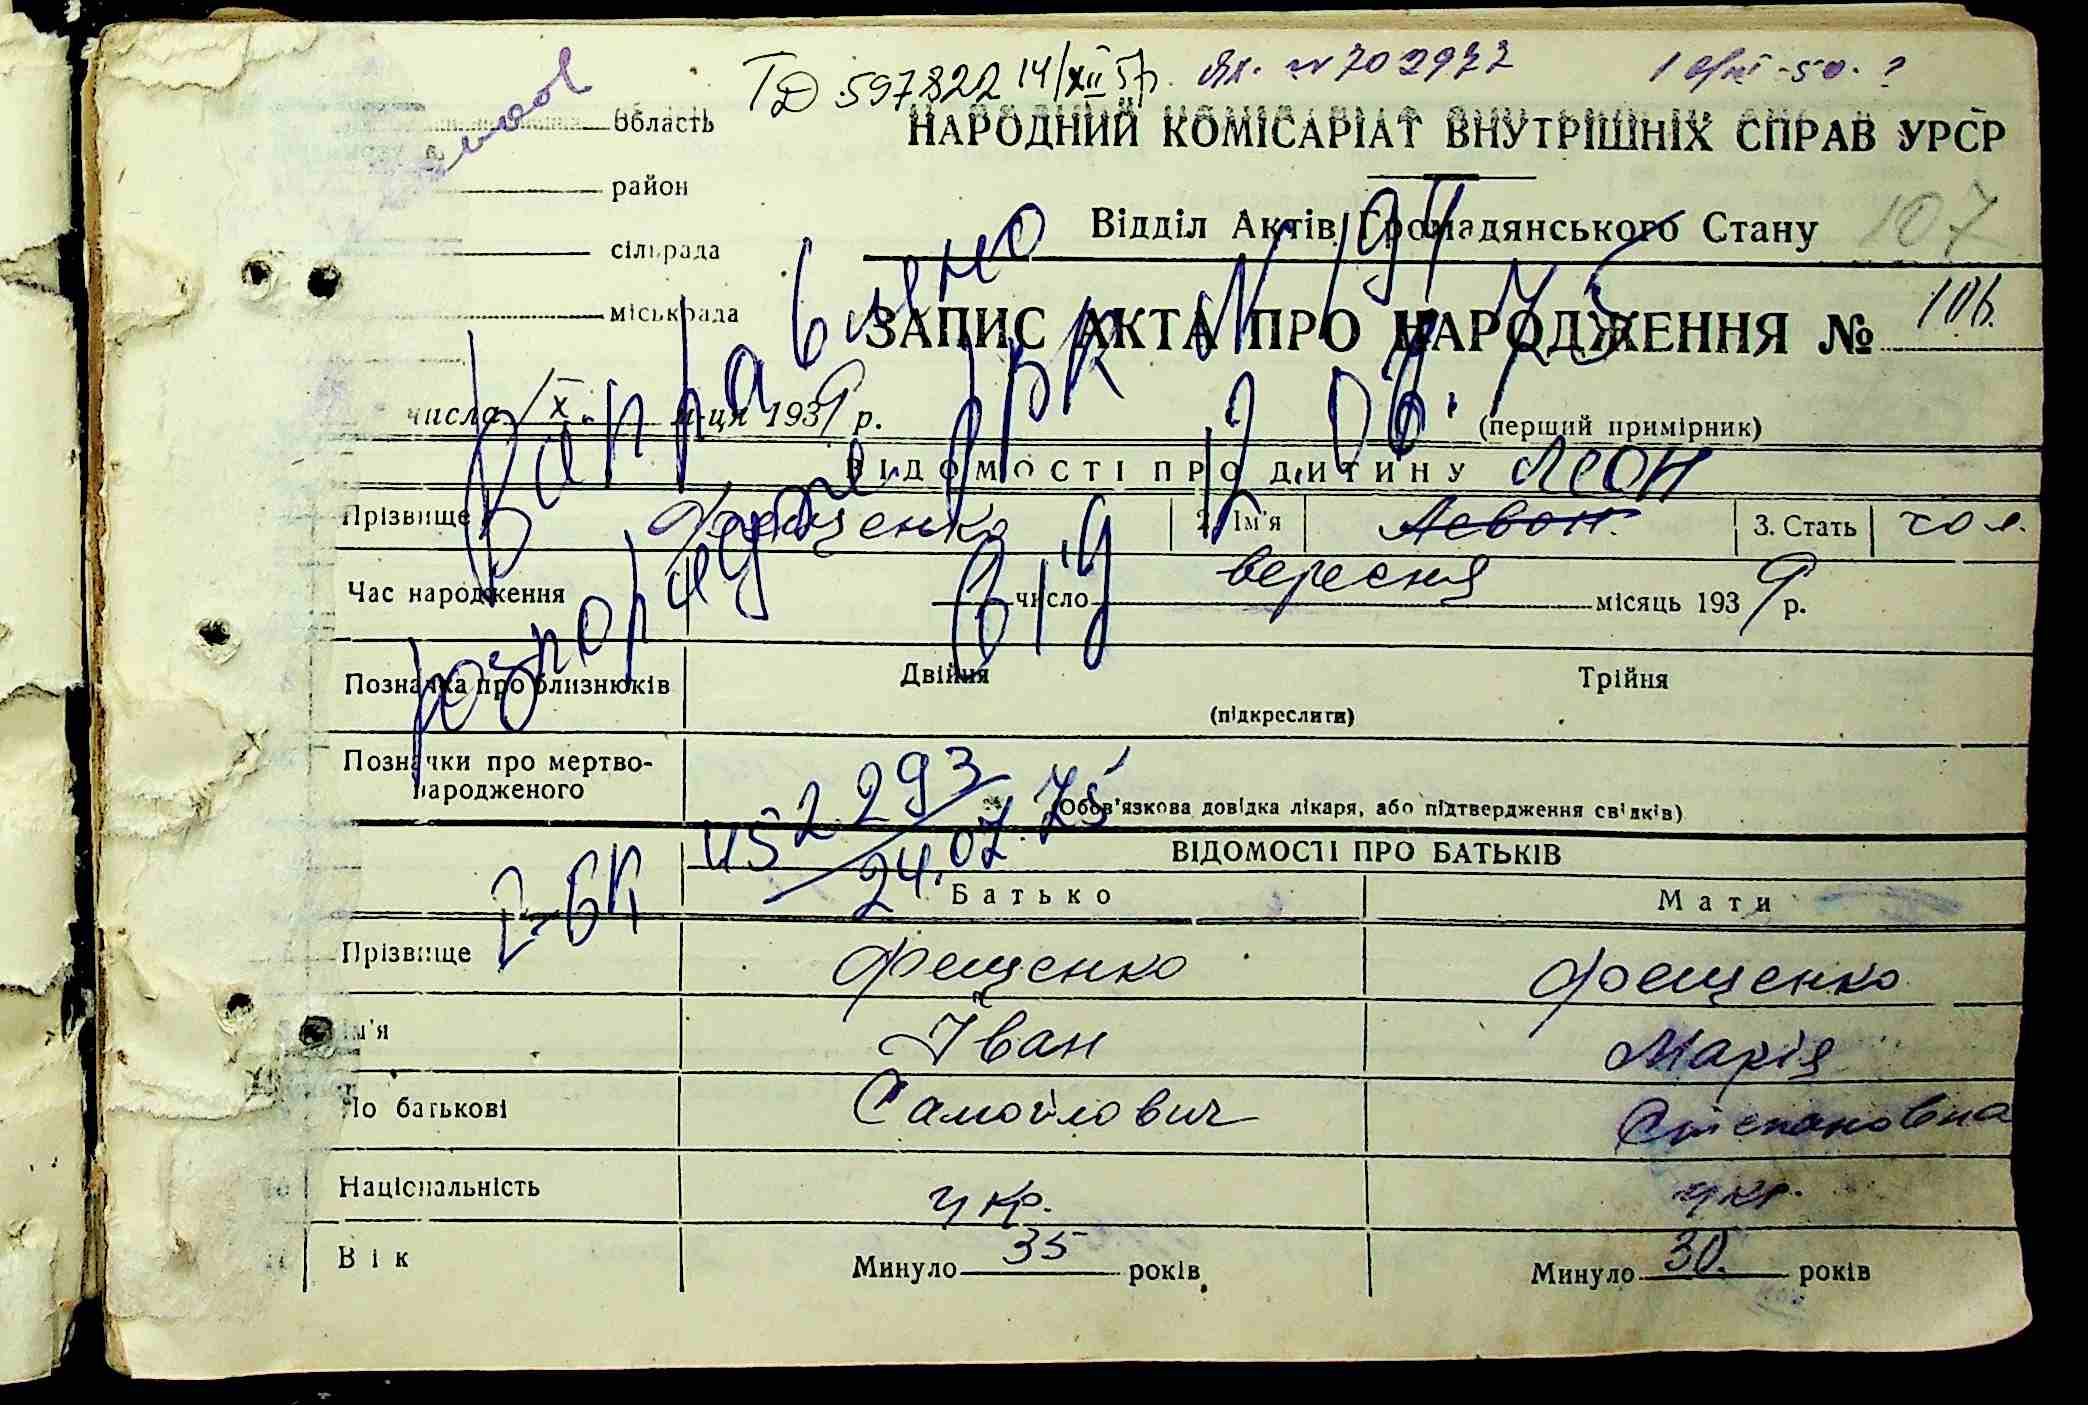 ТД 597822 14/XII 5 р. № 702977
Область
НАРОДНИЙ КОМІСАРІАТ ВНУТРІШНІХ СПРАВ УРСР
район
Відділ Актів Громадянського Стану 107
сільрада
міськрада
ЗАПИС АКТА ПРО НАРОДЖЕННЯ № 106.
числа X м-ця 1939 р.
(перший примірник)
Виправлено
розпорядження
від 12.06.75
ВІДОМОСТІ ПРО ДИТИНУ Леон
Прізвище Фещенко 2. Ім'я Левон. 3. Стать чол.
Час народження число вересня місяць 1939 р.
Позначка про близнюків Двійня Трійня
(підкреслити)
Позначки про мертвонародженого
(Обов'язкова довідка лікаря, або підтвердження свідків)
522293
24.07.75
ВІДОМОСТІ ПРО БАТЬКІВ
Батько Мати
Прізвище Фещенко Фоещенко
Ім'я Іван Марія
По батькові Самойлович Степановна
Національність укр. укр.
Вік Минуло 35 років Минуло 30. років